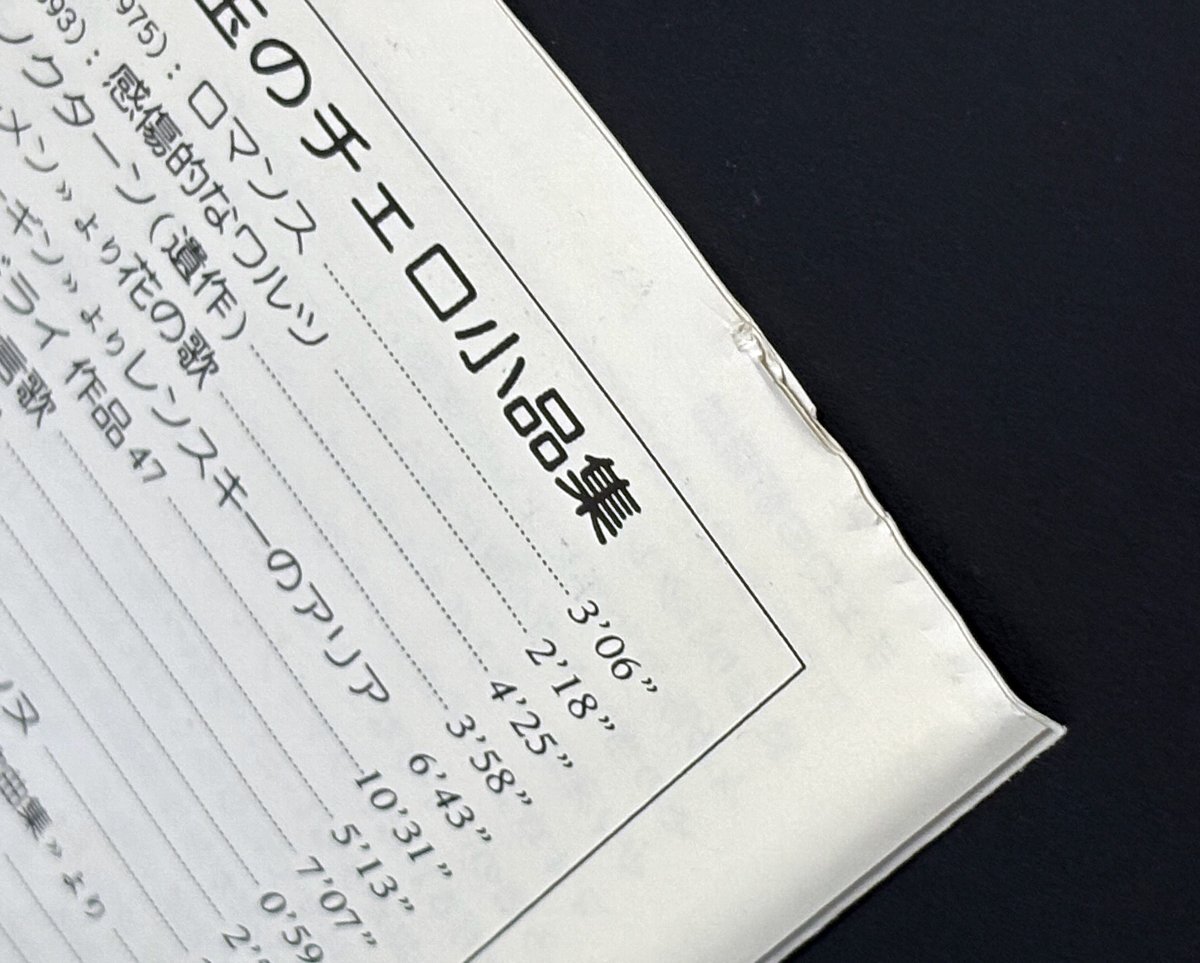 玉のチェロ小品集
975)：ロマンス 3’06”
93)：感傷的なワルツ 2’18”
ノクターン（遺作） 4’25”
メン》より花の歌 3’58”
ーギン》よりレンスキーのアリア 6’43”
ドライ 作品47 10’31”
言歌 5’13”
7’07”
0’59
2’
ヌ
曲集》より